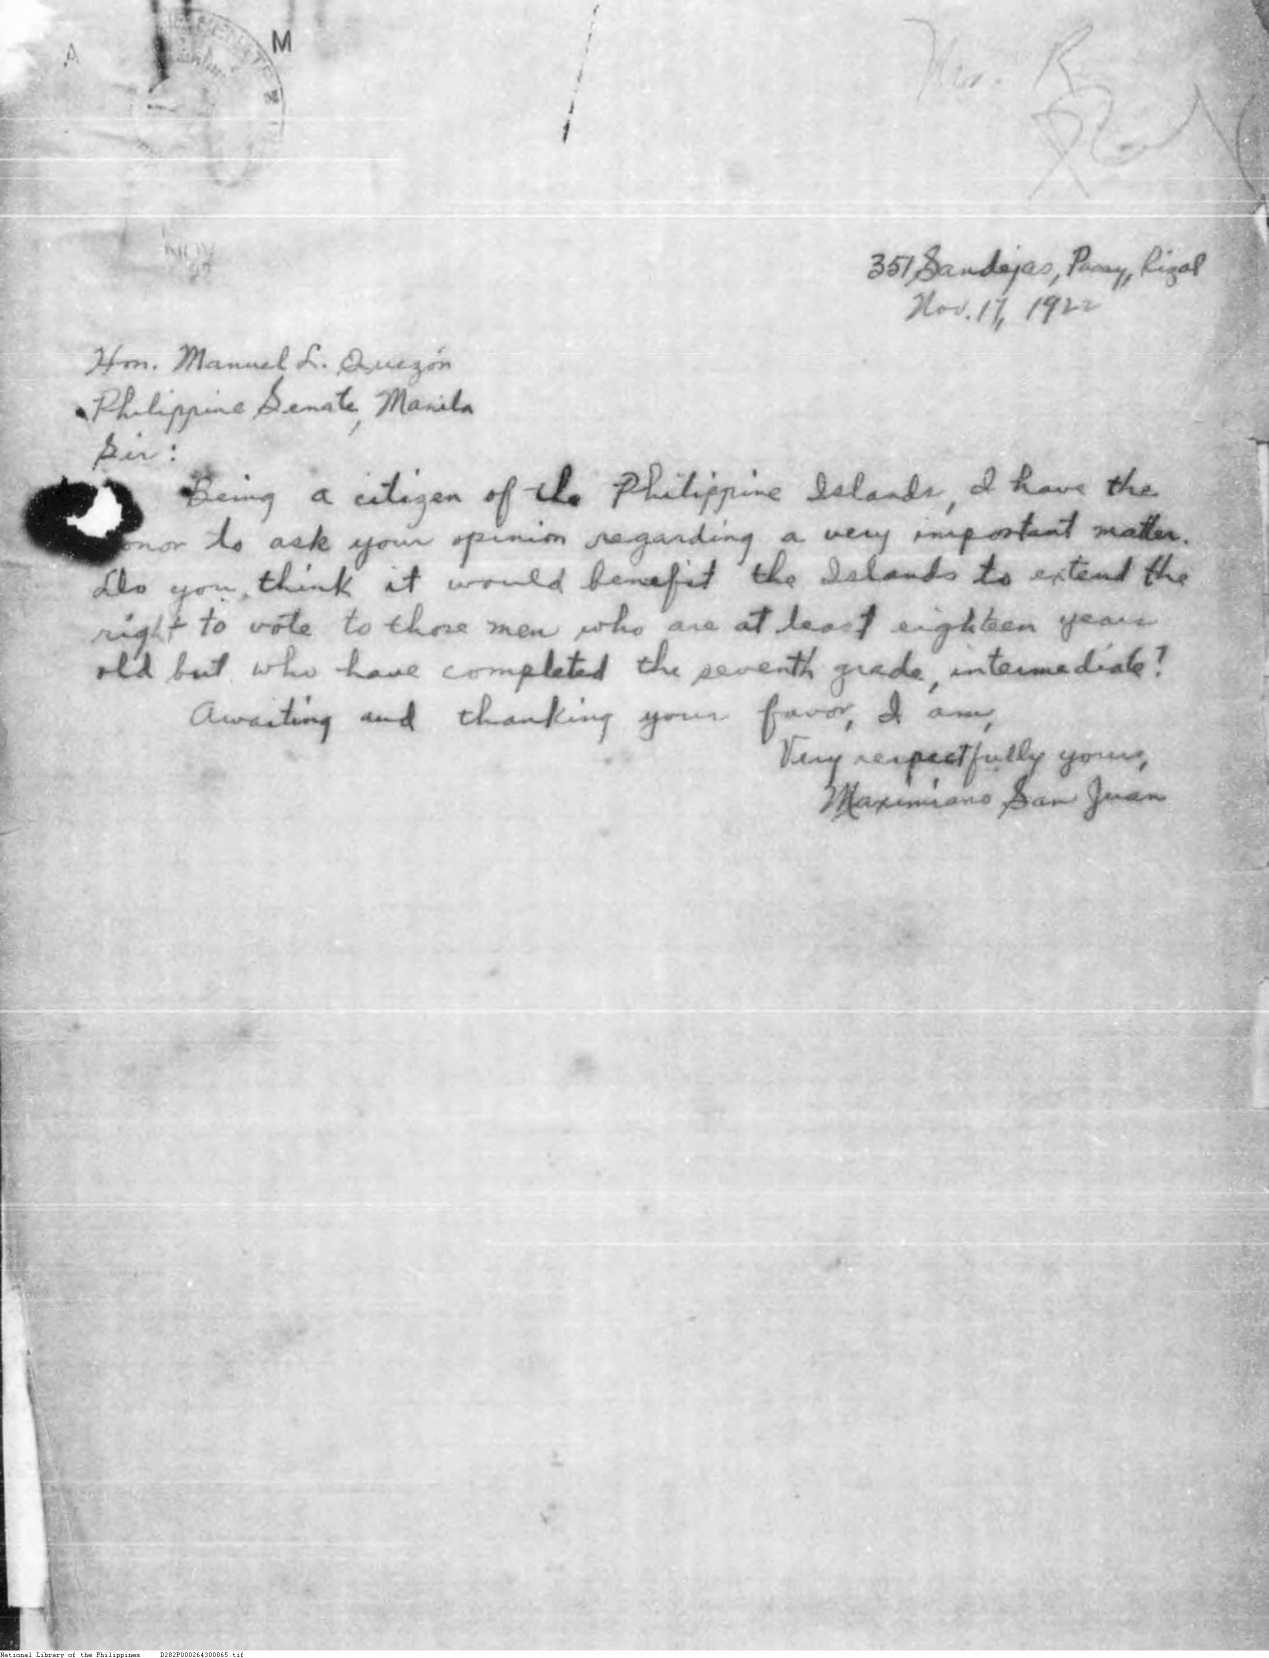 A M
NOV
351 Sandejas, Pasay, Rizal
Nov. 17, 1922
Hon. Manuel L. Quezón
Philippine Senate, Manila
Sir:
Being a citizen of the Philippine Islands, I have the
onor to ask your opinion regarding a very important matter.
Do you think it would benefit the Islands to extend the
right to vote to those men who are at least eighteen years
old but who have completed the seventh grade, intermediate?
Awaiting and thanking your favor, I am,
Very respectfully yours,
Maximiano San Juan
National Library of the Philippines D282P000264300065.tif